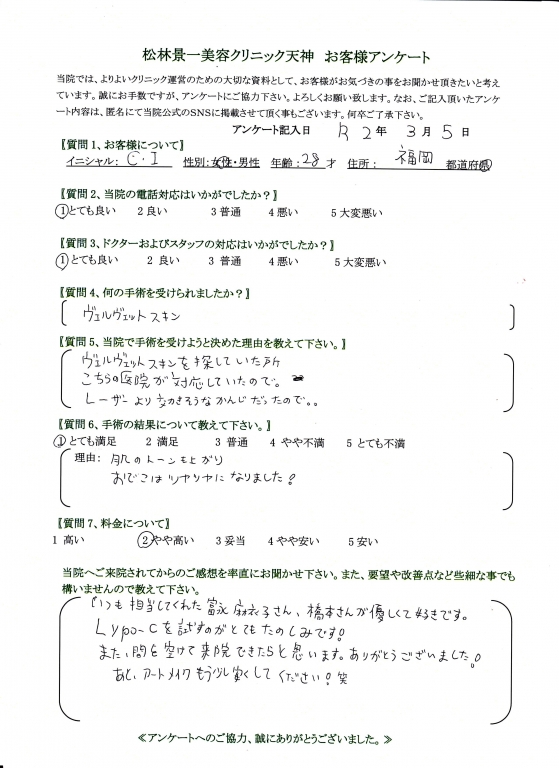 松林景一美容クリニック天神 お客様アンケート
当院では、よりよいクリニック運営のための大切な資料として、お客様がお気づきの事をお聞かせ頂きたいと考え
ています。誠にお手数ですが、アンケートにご協力下さい。よろしくお願い致します。なお、ご記入頂いたアンケ
ート内容は、匿名にて当院公式のSNSに掲載させて頂く事もございます。何卒ご了承下さい。
アンケート記入日 R2年 3月 5日
〖質問1、お客様について〗
イニシャル: C・I 性別:女性・男性 年齢:28才 住所: 福岡 都道府県
〖質問2、当院の電話対応はいかがでしたか?〗
1とても良い 2 良い 3 普通 4 悪い 5 大変悪い
〖質問3、ドクターおよびスタッフの対応はいかがでしたか?〗
1とても良い 2 良い 3 普通 4 悪い 5 大変悪い
〖質問4、何の手術を受けられましたか?〗
ヴェルヴェットスキン
〖質問5、当院で手術を受けようと決めた理由を教えて下さい。〗
ヴェルヴェットスキンを探していた所
こちらの医院が対応していたので。
レーザーより効きそうなかんじだったので。。
〖質問6、手術の結果について教えて下さい。〗
1とても満足 2 満足 3 普通 4 やや不満 5 とても不満
理由: 肌のトーンも上がり
おでこはツヤツヤになりました!
〖質問7、料金について〗
1 高い 2やや高い 3 妥当 4 やや安い 5 安い
当院へご来院されてからのご感想を率直にお聞かせ下さい。また、要望や改善点など些細な事でも
構いませんので教えて下さい。
いつも担当してくれた富永麻衣子さん、橋本さんが優しくて好きです。
Lypo-Cを試すのがとてもたのしみです!
また、間を空けて来院できたらと思います。ありがとうございました!
あと、アートメイクもう少し安くしてください!笑
≪アンケートへのご協力、誠にありがとうございました。≫